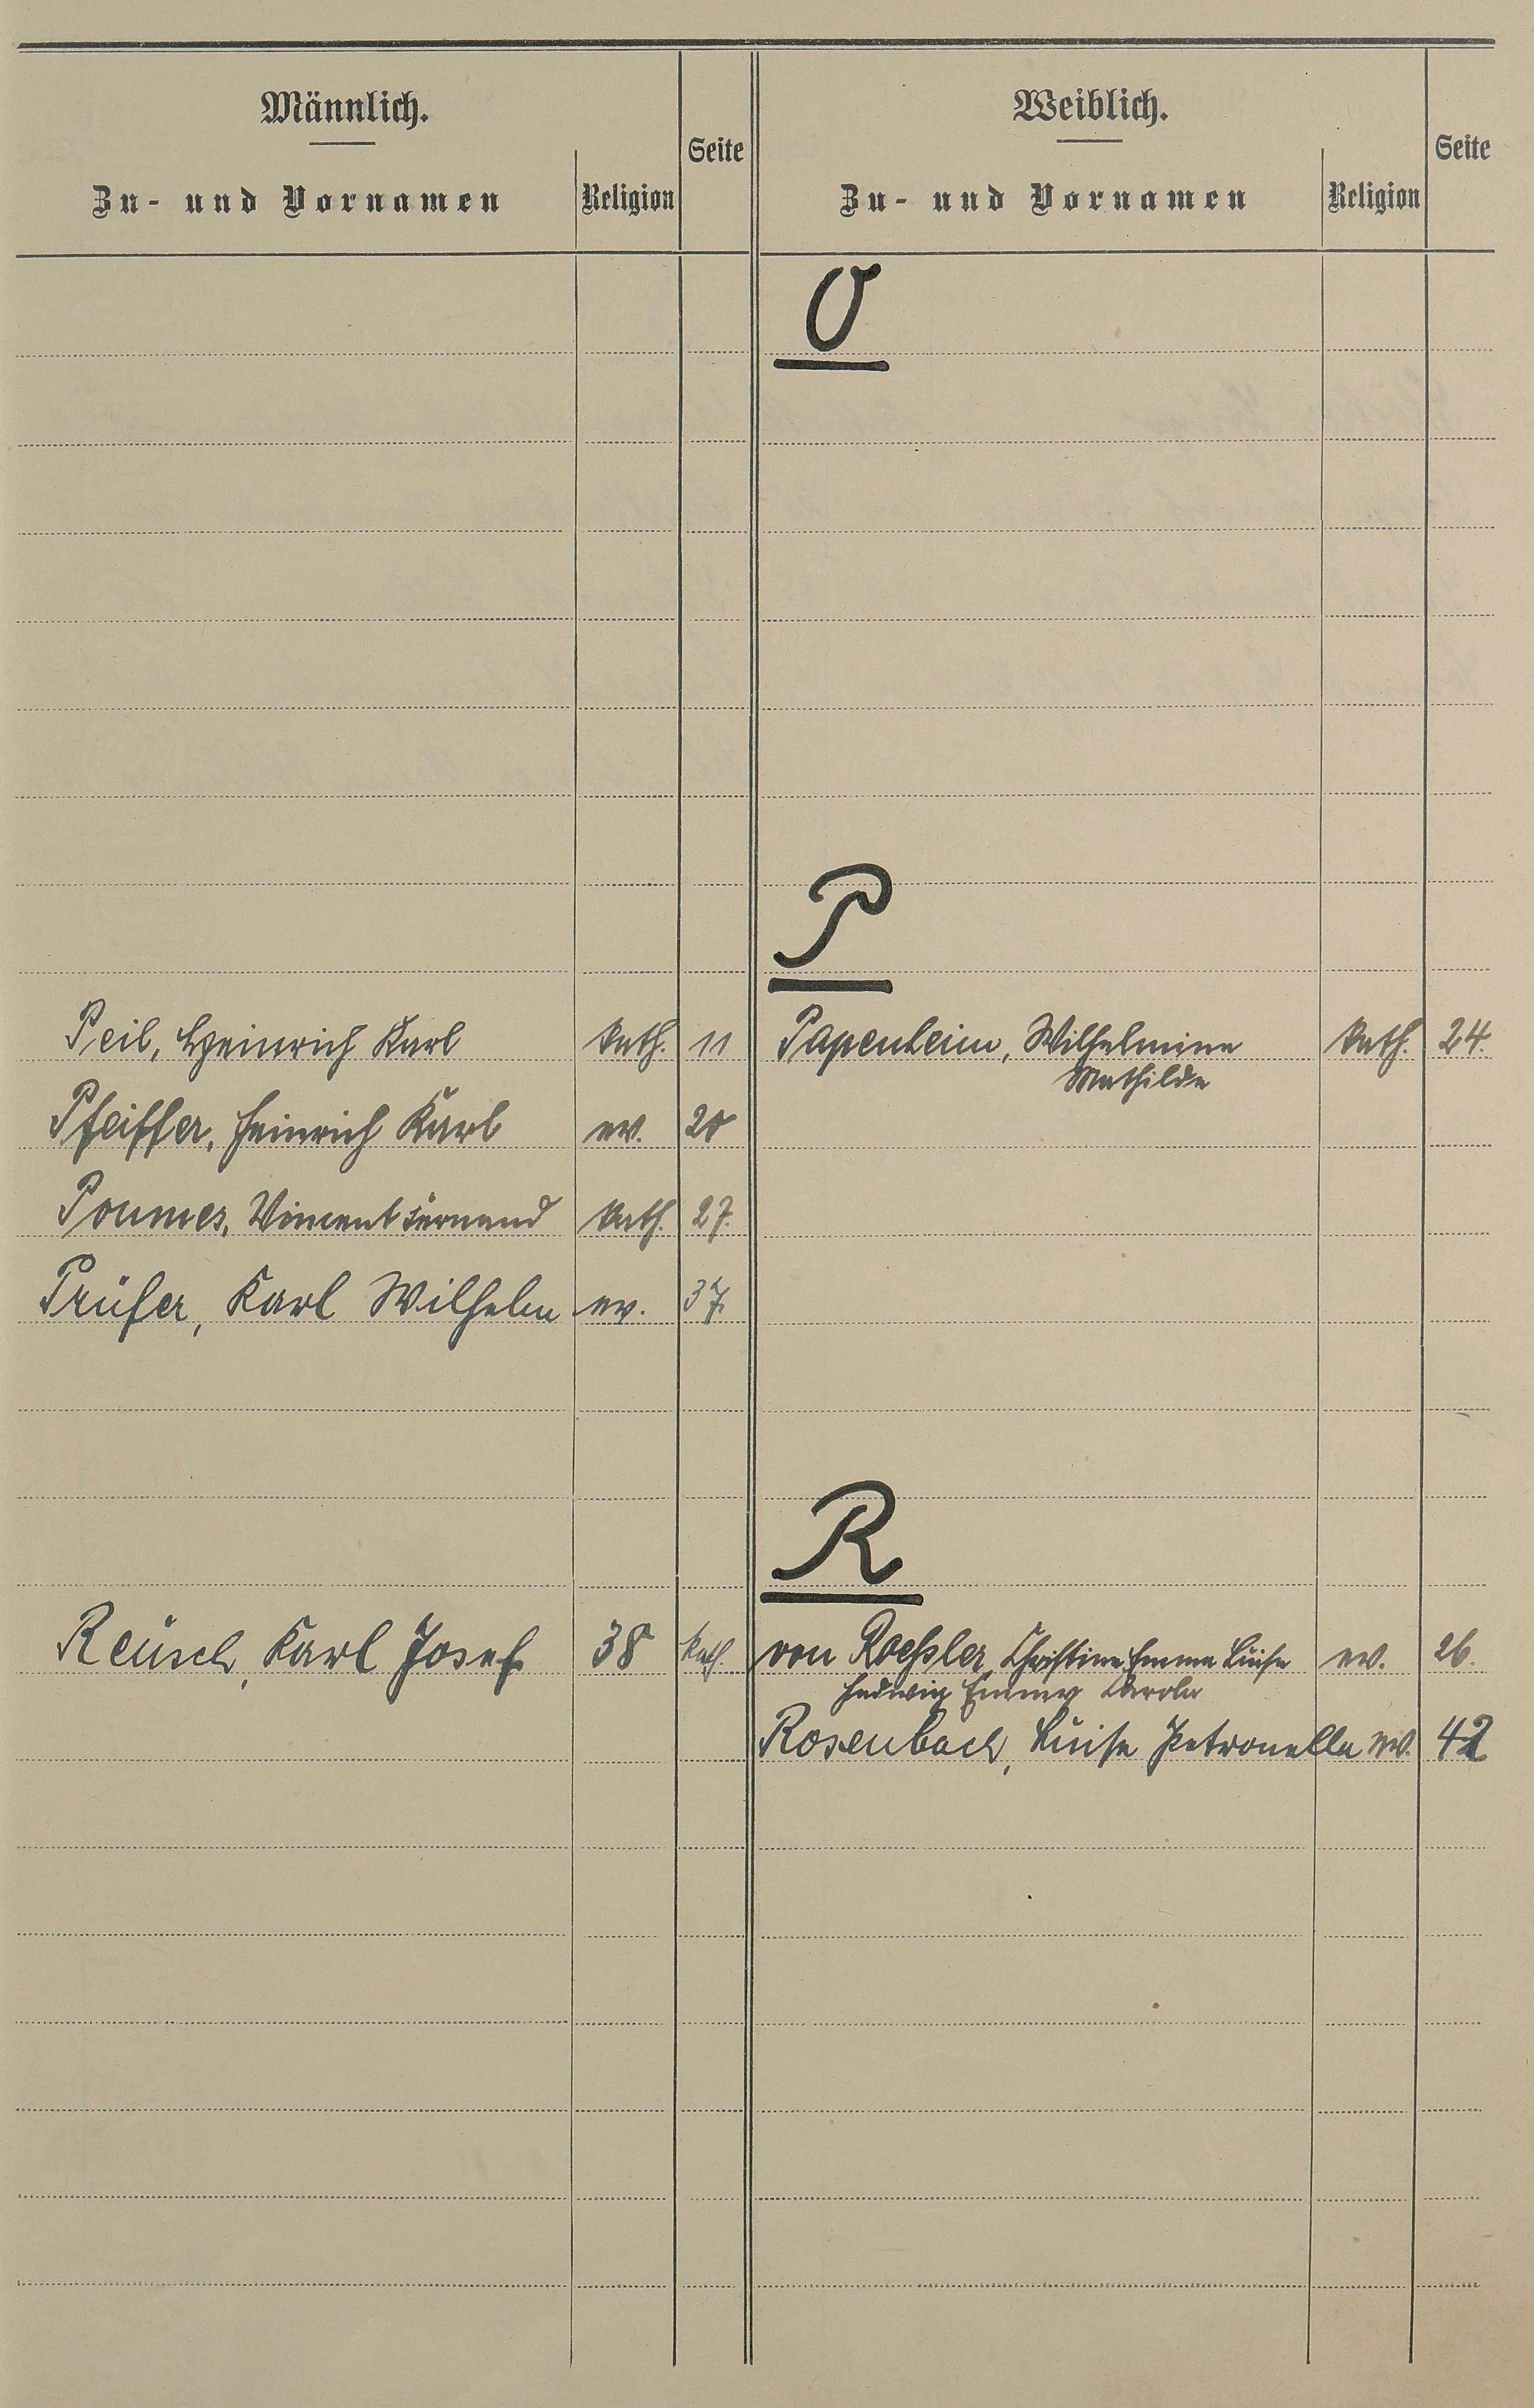 Männlich.
Zu- und Vornamen
Religion
Seite
Weiblich.
Zu- und Vornamen
Religion
Seite
O
P
Peil, Heinrich Karl kath. 11
Papenheim, Wilhelmine kath. 24.
Mathilde
Pfeiffer, Heinrich Karl ev. 20
Poumes, Vincent Fernand kath. 27.
Prüfer, Karl Wilhelm ev. 37.
R
Reusch, Karl Josef 38 kath.
von Roeßler, Christine Emma Luise ev. 26.
Hedwig Emmy Carola
Rosenbach, Luise Petronella ev. 42